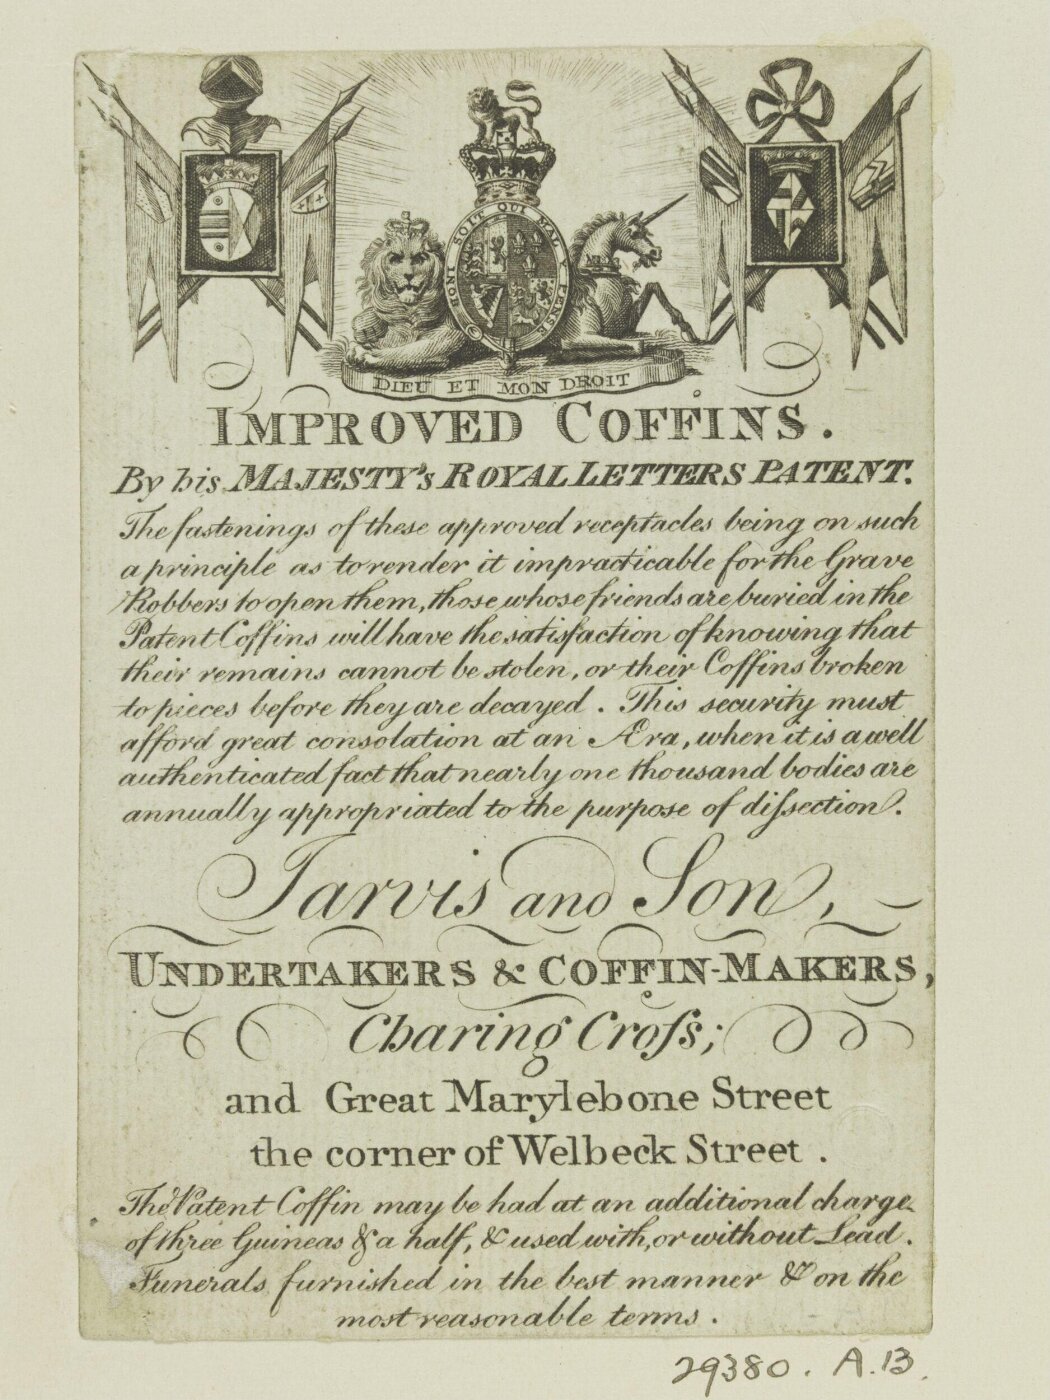 HONI SOIT QUI MAL Y PENSE
DIEU ET MON DROIT
IMPROVED COFFINS.
By his MAJESTY's ROYAL LETTERS PATENT.
The fastenings of these approved receptacles being on such
a principle as to render it impracticable for the Grave
Robbers to open them, those whose friends are buried in the
Patent Coffins will have the satisfaction of knowing that
their remains cannot be stolen, or their Coffins broken
to pieces before they are decayed. This security must
afford great consolation at an Æra, when it is a well
authenticated fact that nearly one thousand bodies are
annually appropriated to the purpose of diſsection.
Jarvis and Son,
UNDERTAKERS & COFFIN-MAKERS,
Charing Croſs;
and Great Marylebone Street
the corner of Welbeck Street.
The Patent Coffin may be had at an additional charge
of three Guineas & a half, & used with, or without Lead.
Funerals furnished in the best manner & on the
most reasonable terms.
29380. A.13.